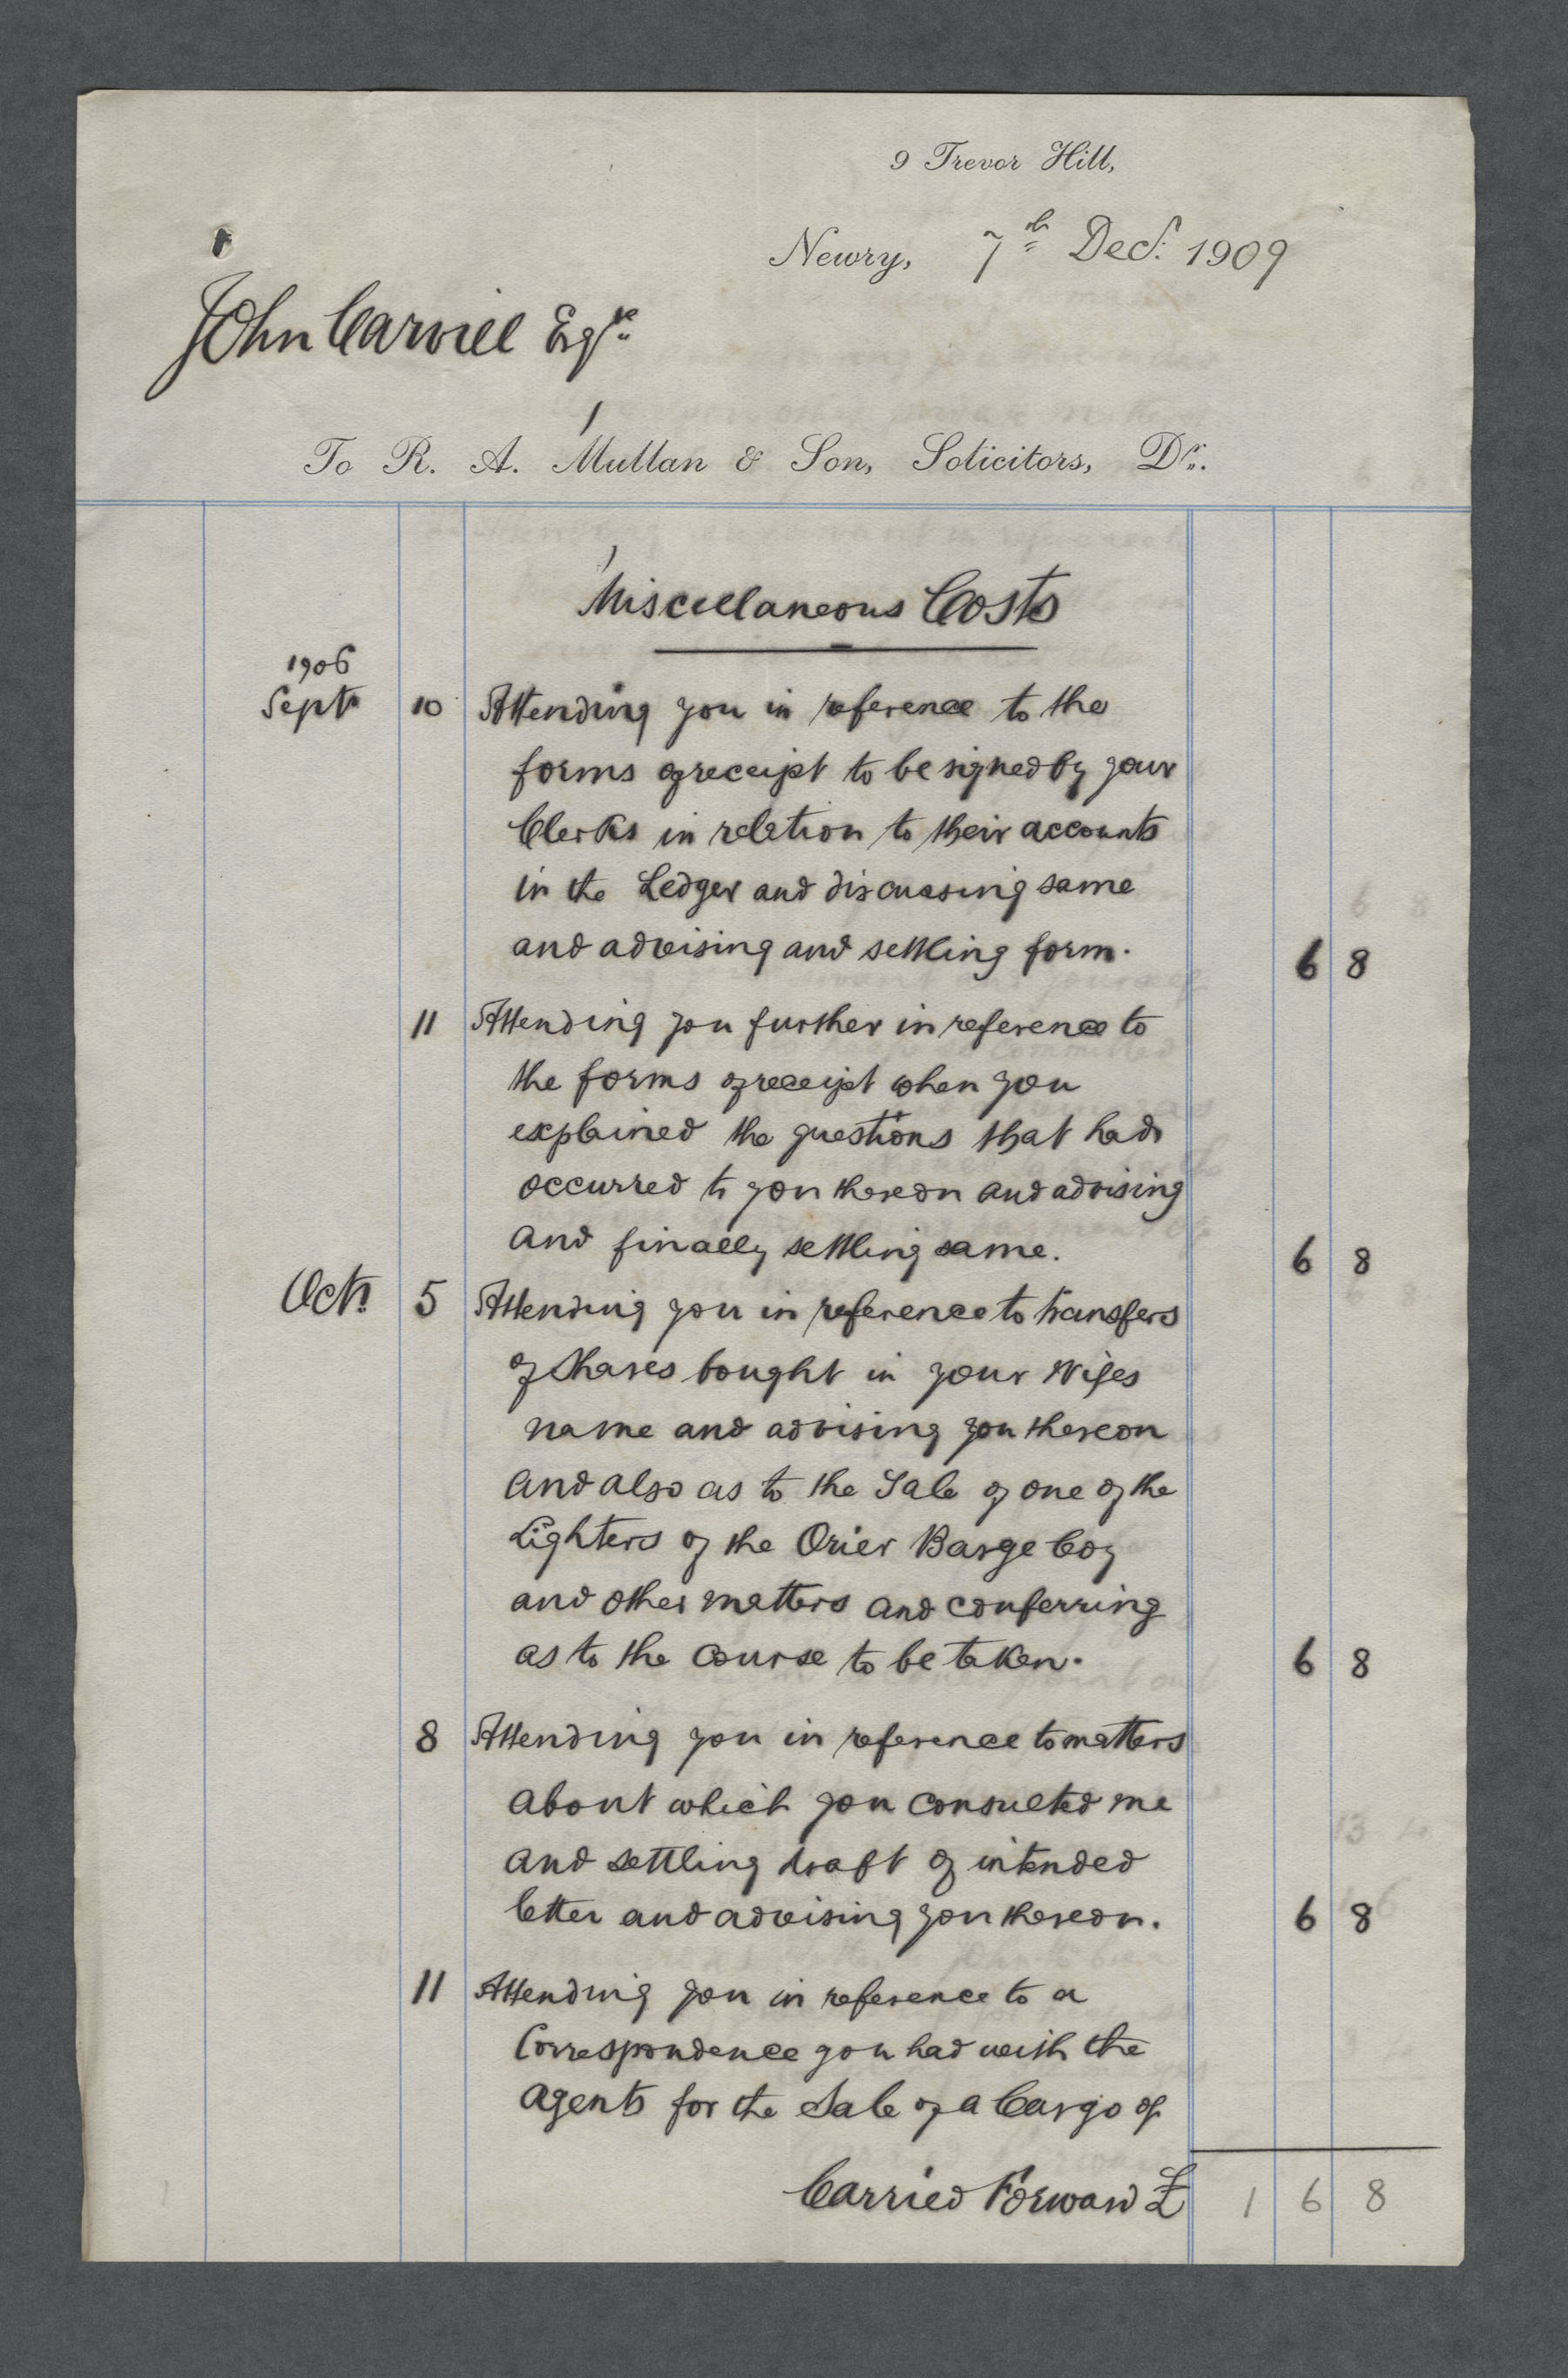 9 Trevor Hill,
Newry, 7th Decr. 1909
John Carvill Esqre
To R. A. Mullan & Son, Solicitors, Dr.
Miscellaneous Costs
1906
Septr 10 Attending you in reference to the
forms of receipt to be signed by your
Clerks in relation to their accounts
in the Ledger and discussing same
and advising and settling form. 6 8
11 Attending you further in reference to
the forms of receipt when you
explained the questions that had
occurred to you thereon and advising
and finally settling same. 6 8
Octr 5 Attending you in reference to transfers
of Shares bought in your Wifes
name and advising you thereon
and also as to the Sale of one of the
Lighters of the Orier Barge Coy
and other matters and conferring
as to the course to be taken. 6 8
8 Attending you in reference to matters
about which you consulted me
and settling draft of intended
letter and advising you thereon. 6 8
11 Attending you in reference to a
Correspondence you had with the
agents for the Sale of a Cargo of
Carried Forward £ 1 6 8